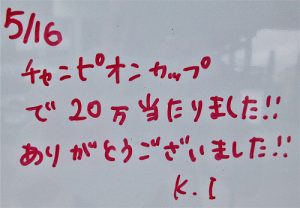 5/16
チャンピオンカップ
で20万当たりました!!
ありがとうございました!!
K.I